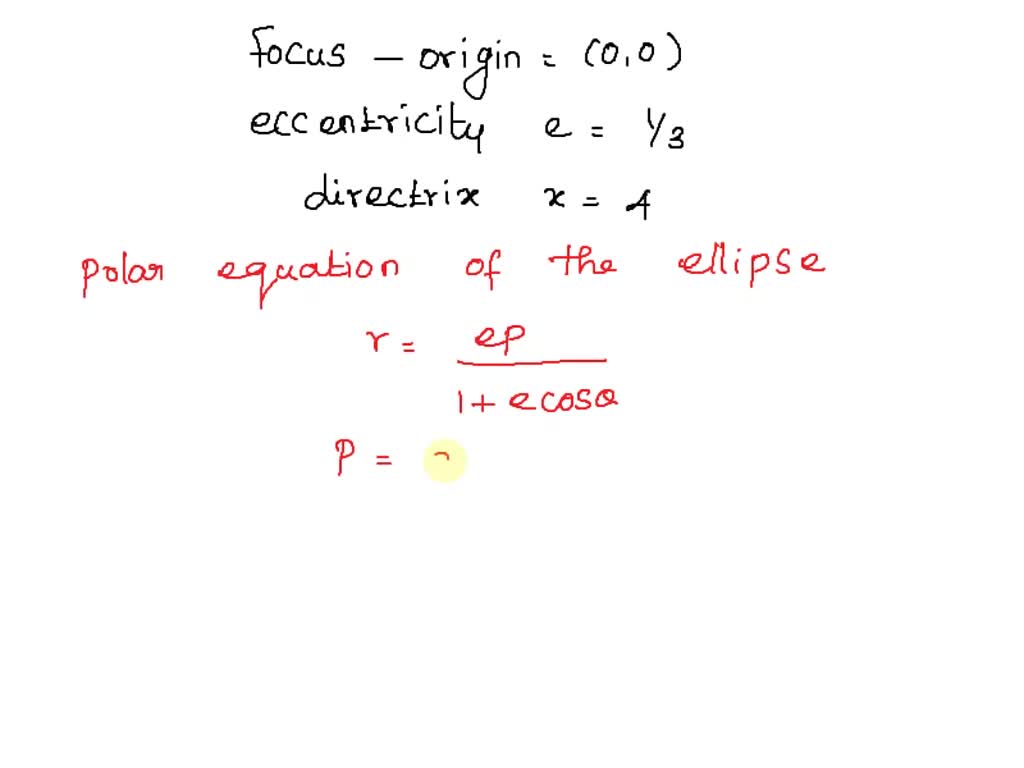 Focus - origin = (0,0)
eccentricity e = 1/3
directrix x = 4
polar equation of the ellipse
r = ep / 1 + e cosθ
P =